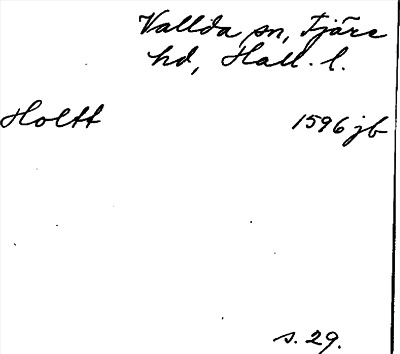 Vallda sn, Fjäre
hd, Hall. l.
Holtt 1596 jb
s. 29.